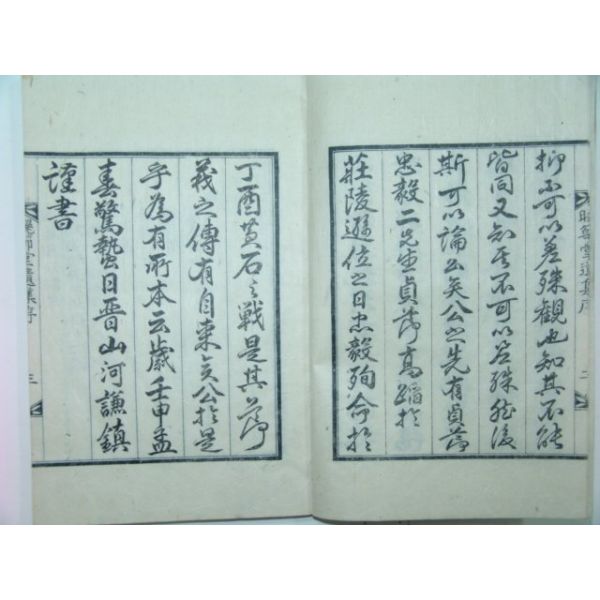 抑亦可以差殊觀也知其不能
皆同又知其不可以差殊然後
斯可以論公矣公之先有貞節
忠毅二先生貞節高蹈於
莊陵遜位之日忠毅殉命於
丁酉黃石之戰是其節
義之傳有自來矣公於是
乎為有所本云歲壬申孟
春驚蟄日晋山河謙鎮
謹書
堂遺集序
二
堂遺集序
三